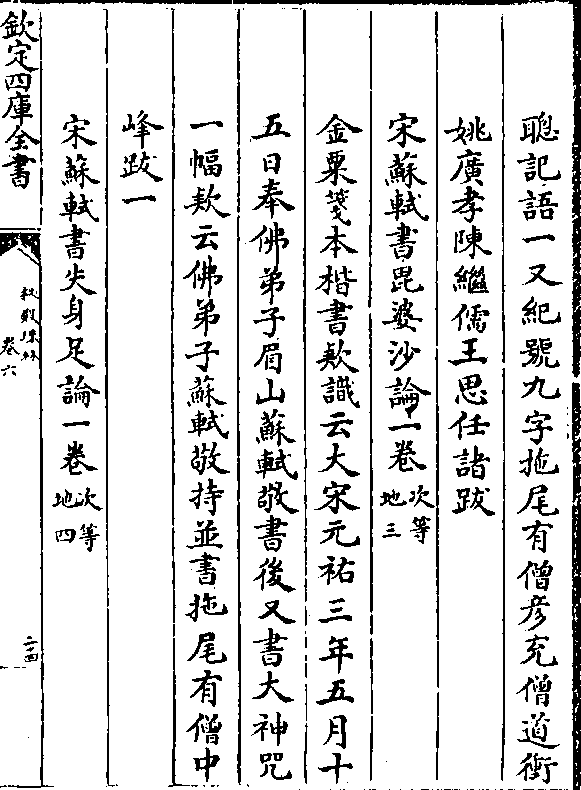 聰記語一又紀號九字拖尾有僧彦充僧道衝
姚廣孝陳繼儒王思任諸跋
宋蘇軾書毘婆沙論一卷次等地三
金粟箋本楷書欵識云大宋元祐三年五月十
五日奉佛弟子眉山蘇軾敬書後又書大神咒
一幅欵云佛弟子蘇軾敬持並書拖尾有僧中
峰跋一
宋蘇軾書失身足論一卷次等地四
欽定四庫全書
秘殿珠林
卷六
二十四